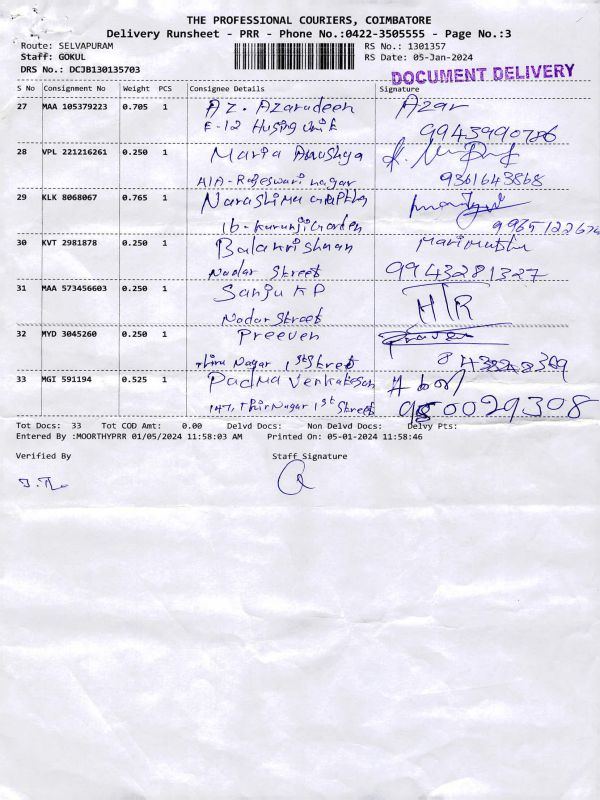 THE PROFESSIONAL COURIERS, COIMBATORE
Delivery Runsheet - PRR - Phone No.:0422-3505555 - Page No.:3
Route: SELVAPURAM RS No.: 1301357
Staff: GOKUL RS Date: 05-Jan-2024
DRS No.: DCJB130135703 DOCUMENT DELIVERY
S No Consignment No Weight PCS Consignee Details Signature
27 MAA 105379223 0.705 1 Az. Azarudeen Azar
E-12 Husing Unit 9943990786
28 VPL 221216261 0.250 1 Maria Anushya
A1A-Rajeswari nagar 9361643868
29 KLK 8068067 0.765 1 Narashima
16-Kurunji Gorden
30 KVT 2981878 0.250 1 Balakrishnan Marimuthu
Nadar Street 9943281327
31 MAA 573456603 0.250 1 Sanju KP HTR
Nadar Street
32 MYD 3045260 0.250 1 Preeven Praveen
Thiru Nagar 1st Street
33 MGI 591194 0.525 1 Padma Venkatesan
147, Thir Nagar 1st Street 950029308
Tot Docs: 33 Tot COD Amt: 0.00 Delvd Docs: Non Delvd Docs: Delvy Pts:
Entered By :MOORTHYPRR 01/05/2024 11:58:03 AM Printed On: 05-01-2024 11:58:46
Verified By Staff Signature